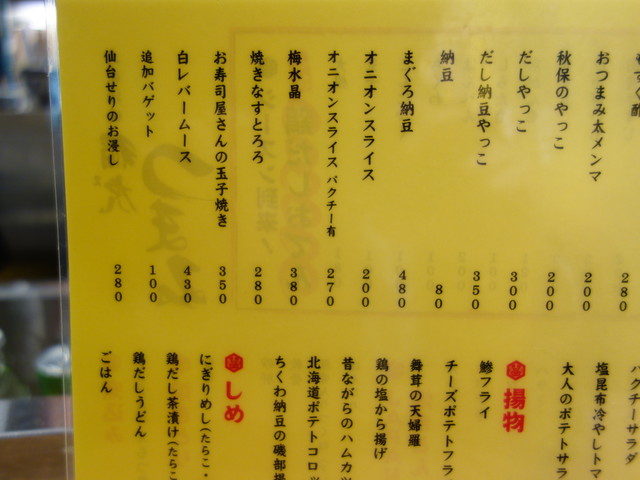 もずく酢 280
おつまみ太メンマ 200
秋保のやっこ 200
だしやっこ 300
だし納豆やっこ 350
納豆 80
まぐろ納豆 480
オニオンスライス 200
オニオンスライス パクチー有 270
梅水晶 380
焼きなすとろろ 280
お寿司屋さんの玉子焼き 350
白レバームース 430
追加バゲット 100
仙台せりのお浸し 280
パクチーサラダ
塩昆布冷やしトマ
大人のポテトサラ
揚物
鯵フライ
チーズポテトフラ
舞茸の天婦羅
鶏の塩から揚げ
昔ながらのハムカツ
北海道ポテトコロッ
ちくわ納豆の磯部揚
しめ
にぎりめし(たらこ・
鶏だし茶漬け(たらこ
鶏だしうどん
ごはん